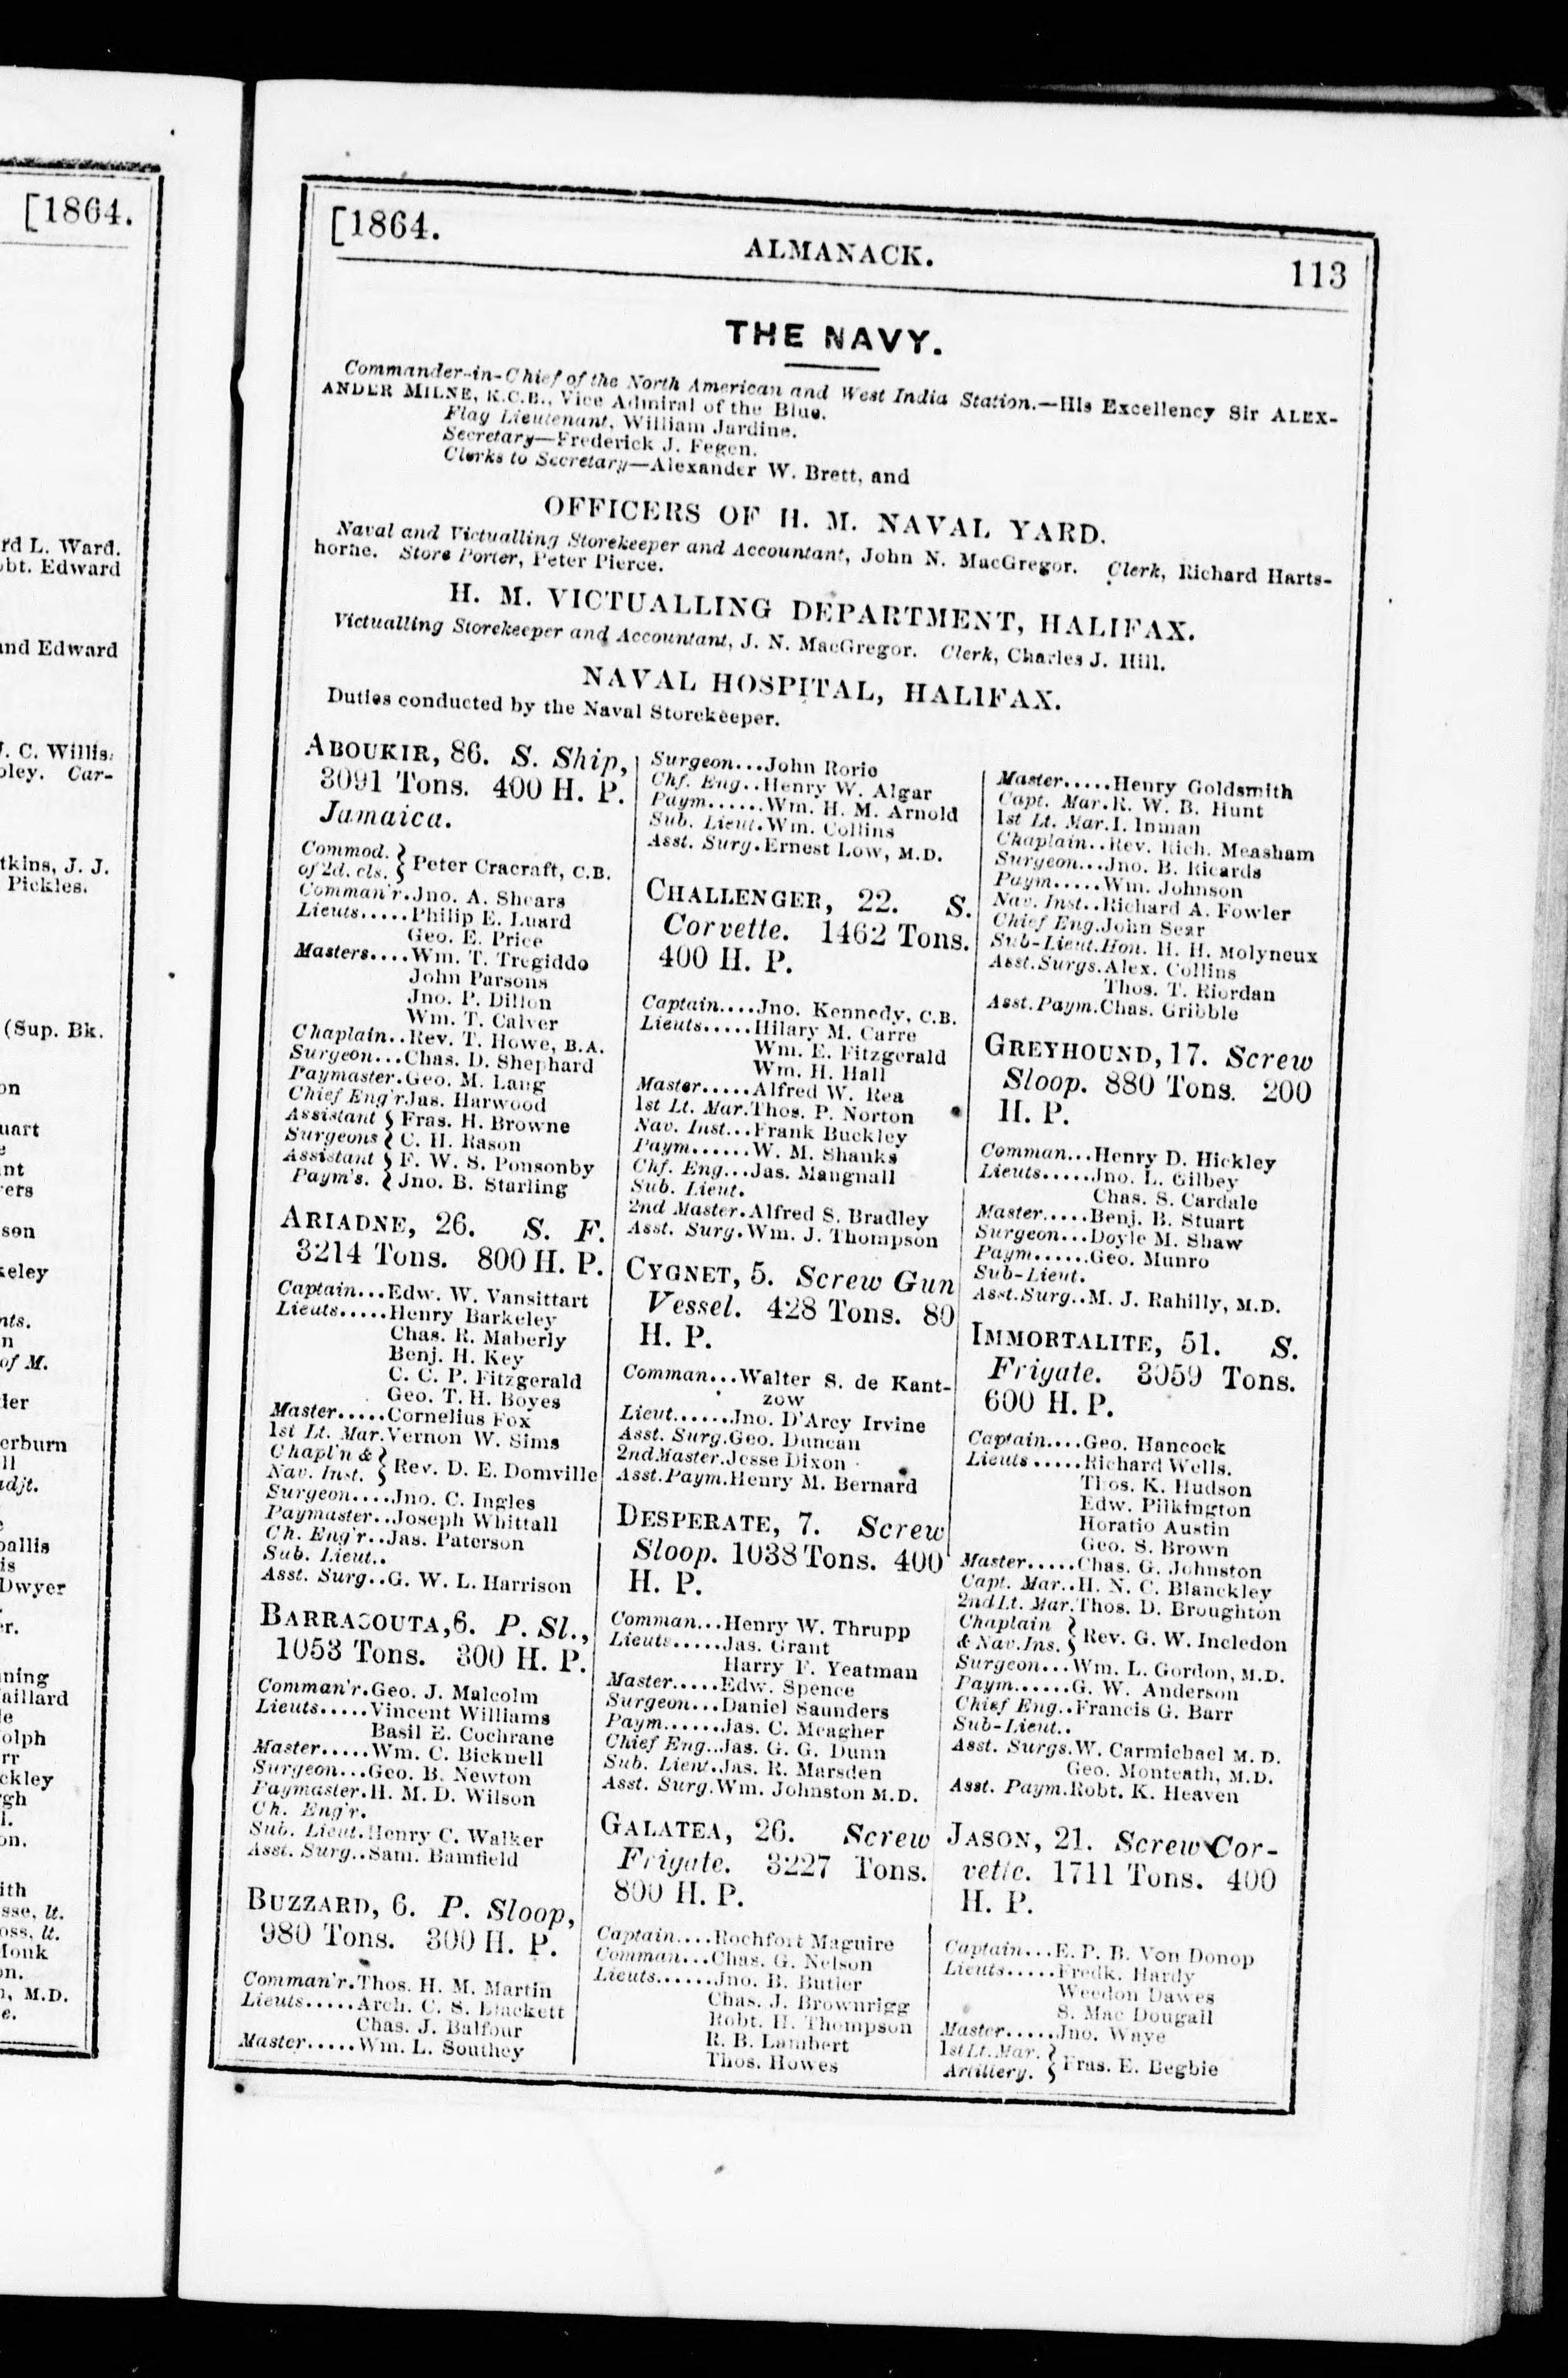 [1864.
rd L. Ward.
obt. Edward
and Edward
J. C. Willis.
oley. Car-
tkins, J. J.
Pickles.
(Sup. Bk.
on
uart
e
nt
vers
son
keley
nts.
n
of M.
ler
erburn
ll
adjt.
e
pallis
is
Dwyer
er.
ning
aillard
le
olph
rr
ckley
gh
l.
on.
ith
sse, lt.
oss, lt.
Monk
on.
n, M.D.
e.
[1864. ALMANACK. 113
THE NAVY.
Commander-in-Chief of the North American and West India Station.—His Excellency Sir ALEX-
ANDER MILNE, K.C.B., Vice Admiral of the Blue.
Flag Lieutenant, William Jardine.
Secretary—Frederick J. Fegen.
Clerks to Secretary—Alexander W. Brett, and
OFFICERS OF H. M. NAVAL YARD.
Naval and Victualling Storekeeper and Accountant, John N. MacGregor. Clerk, Richard Harts-
horne. Store Porter, Peter Pierce.
H. M. VICTUALLING DEPARTMENT, HALIFAX.
Victualling Storekeeper and Accountant, J. N. MacGregor. Clerk, Charles J. Hill.
NAVAL HOSPITAL, HALIFAX.
Duties conducted by the Naval Storekeeper.
ABOUKIR, 86. S. Ship,
3091 Tons. 400 H. P.
Jamaica.
Commod. }
of 2d. cls. } Peter Cracraft, C.B.
Comman'r.Jno. A. Shears
Lieuts.....Philip E. Luard
Geo. E. Price
Masters....Wm. T. Tregiddo
John Parsons
Jno. P. Dillon
Wm. T. Calver
Chaplain..Rev. T. Howe, B.A.
Surgeon...Chas. D. Shephard
Paymaster.Geo. M. Lang
Chief Eng'rJas. Harwood
Assistant } Fras. H. Browne
Surgeons } C. H. Rason
Assistant } F. W. S. Ponsonby
Paym's. } Jno. B. Starling
ARIADNE, 26. S. F.
3214 Tons. 800 H. P.
Captain...Edw. W. Vansittart
Lieuts.....Henry Barkeley
Chas. R. Maberly
Benj. H. Key
C. C. P. Fitzgerald
Geo. T. H. Boyes
Master.....Cornelius Fox
1st Lt. Mar.Vernon W. Sims
Chapl'n & }
Nav. Inst. } Rev. D. E. Domville
Surgeon....Jno. C. Ingles
Paymaster..Joseph Whittall
Ch. Eng'r..Jas. Paterson
Sub. Lieut..
Asst. Surg..G. W. L. Harrison
BARRACOUTA,6. P. Sl.,
1053 Tons. 300 H. P.
Comman'r.Geo. J. Malcolm
Lieuts.....Vincent Williams
Basil E. Cochrane
Master.....Wm. C. Bicknell
Surgeon...Geo. B. Newton
Paymaster.H. M. D. Wilson
Ch. Eng'r.
Sub. Lieut.Henry C. Walker
Asst. Surg..Sam. Bamfield
BUZZARD, 6. P. Sloop,
980 Tons. 300 H. P.
Comman'r.Thos. H. M. Martin
Lieuts.....Arch. C. S. Blackett
Chas. J. Balfour
Master.....Wm. L. Southey
Surgeon...John Rorie
Chf. Eng..Henry W. Algar
Paym......Wm. H. M. Arnold
Sub. Lieut.Wm. Collins
Asst. Surg.Ernest Low, M.D.
CHALLENGER, 22. S.
Corvette. 1462 Tons.
400 H. P.
Captain....Jno. Kennedy, C.B.
Lieuts.....Hilary M. Carre
Wm. E. Fitzgerald
Wm. H. Hall
Master.....Alfred W. Rea
1st Lt. Mar.Thos. P. Norton
Nav. Inst...Frank Buckley
Paym......W. M. Shanks
Chf. Eng...Jas. Mangnall
Sub. Lieut.
2nd Master.Alfred S. Bradley
Asst. Surg.Wm. J. Thompson
CYGNET, 5. Screw Gun
Vessel. 428 Tons. 80
H. P.
Comman...Walter S. de Kant-
zow
Lieut......Jno. D'Arcy Irvine
Asst. Surg.Geo. Duncan
2nd Master.Jesse Dixon
Asst.Paym.Henry M. Bernard
DESPERATE, 7. Screw
Sloop. 1038 Tons. 400
H. P.
Comman...Henry W. Thrupp
Lieuts.....Jas. Grant
Harry F. Yeatman
Master.....Edw. Spence
Surgeon...Daniel Saunders
Paym......Jas. C. Meagher
Chief Eng..Jas. G. G. Dunn
Sub. Lieut.Jas. R. Marsden
Asst. Surg.Wm. Johnston M.D.
GALATEA, 26. Screw
Frigate. 3227 Tons.
800 H. P.
Captain....Rochfort Maguire
Comman...Chas. G. Nelson
Lieuts......Jno. B. Butler
Chas. J. Brownrigg
Robt. H. Thompson
R. B. Lambert
Thos. Howes
Master.....Henry Goldsmith
Capt. Mar.R. W. B. Hunt
1st Lt. Mar.I. Inman
Chaplain..Rev. Rich. Measham
Surgeon...Jno. B. Ricards
Paym.....Wm. Johnson
Nav. Inst..Richard A. Fowler
Chief Eng.John Sear
Sub-Lieut.Hon. H. H. Molyneux
Asst.Surgs.Alex. Collins
Thos. T. Riordan
Asst.Paym.Chas. Gribble
GREYHOUND, 17. Screw
Sloop. 880 Tons. 200
H. P.
Comman...Henry D. Hickley
Lieuts.....Jno. L. Gilbey
Chas. S. Cardale
Master.....Benj. B. Stuart
Surgeon...Doyle M. Shaw
Paym......Geo. Munro
Sub-Lieut.
Asst.Surg..M. J. Rahilly, M.D.
IMMORTALITE, 51. S.
Frigate. 3059 Tons.
600 H. P.
Captain....Geo. Hancock
Lieuts.....Richard Wells.
Thos. K. Hudson
Edw. Pilkington
Horatio Austin
Geo. S. Brown
Master.....Chas. G. Johnston
Capt. Mar..H. N. C. Blanckley
2nd Lt. Mar.Thos. D. Broughton
Chaplain }
& Nav.Ins. } Rev. G. W. Incledon
Surgeon...Wm. L. Gordon, M.D.
Paym......G. W. Anderson
Chief Eng..Francis G. Barr
Sub-Lieut..
Asst. Surgs.W. Carmichael M. D.
Geo. Monteath, M.D.
Asst. Paym.Robt. K. Heaven
JASON, 21. Screw Cor-
vette. 1711 Tons. 400
H. P.
Captain...E. P. B. Von Donop
Lieuts.....Fredk. Hardy
Weedon Dawes
S. Mac Dougall
Master.....Jno. Waye
1st Lt. Mar. }
Artillery. } Fras. E. Begbie